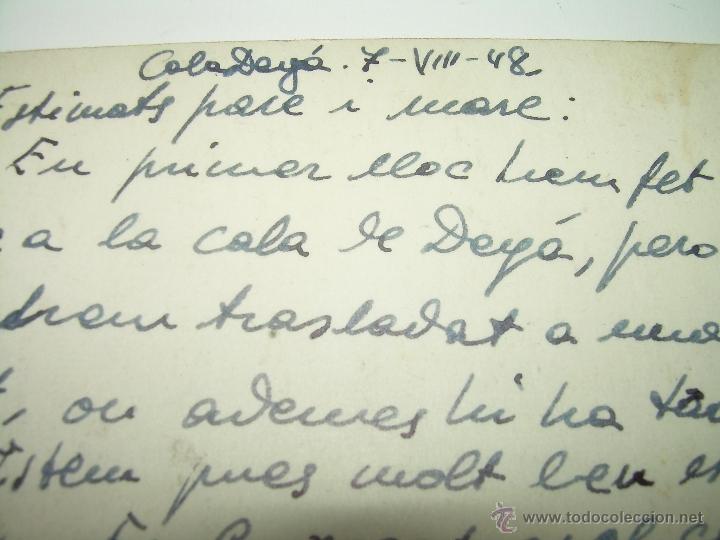 Cala Deyá. 7-VIII-48
Estimats pare i mare:
En primer lloc hem fet
a la cala de Deyá, pero
trasladat a una
, on ademes hi ha
Estem pues molt ben
© todocoleccion
www.todocoleccion.net